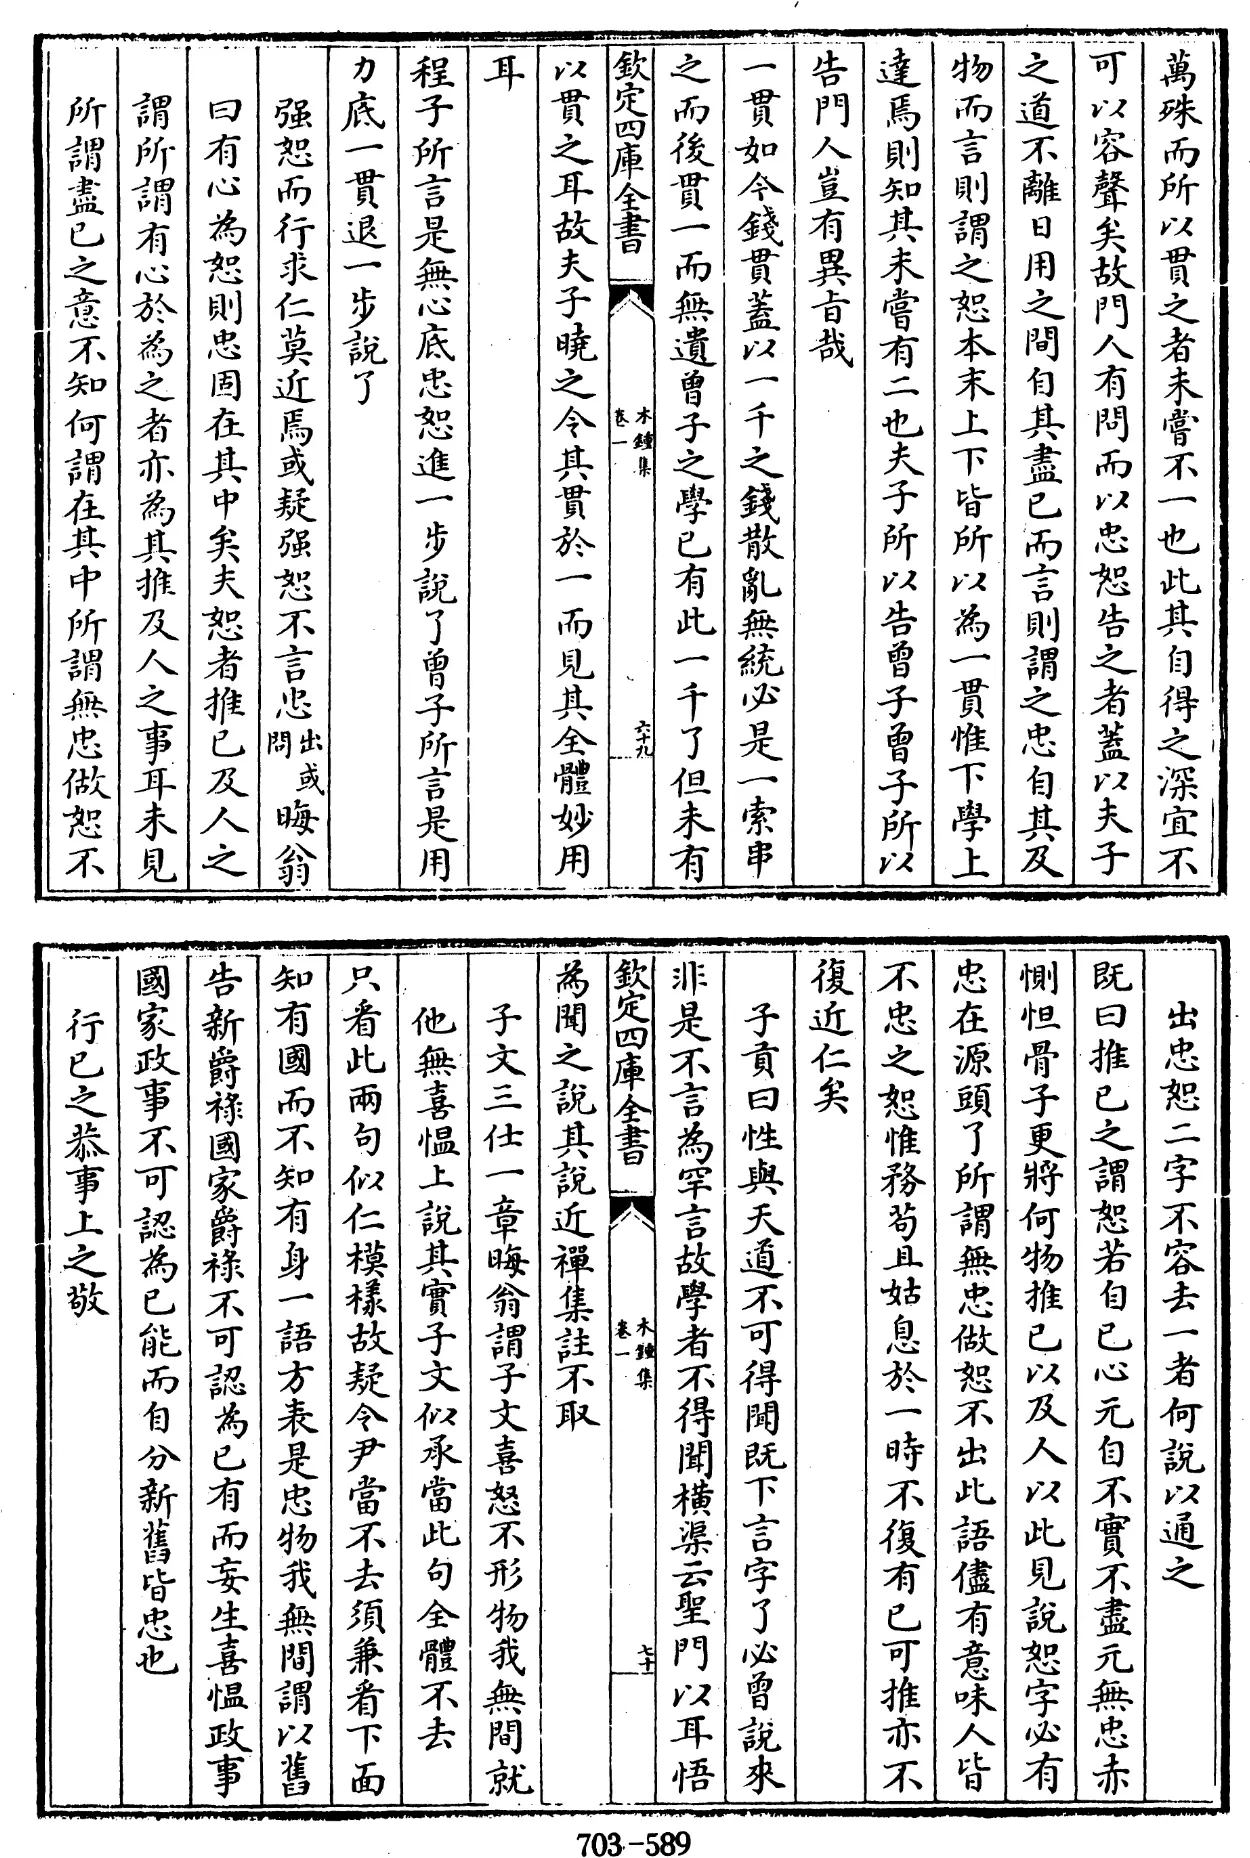 萬殊而所以貫之者未嘗不一也此其自得之深宜不
可以容聲矣故門人有問而以忠恕告之者蓋以夫子
之道不離日用之間自其盡已而言則謂之忠自其及
物而言則謂之恕本末上下皆所以為一貫惟下學上
達焉則知其未嘗有二也夫子所以告曾子曾子所以
告門人豈有異旨哉
一貫如今錢貫蓋以一千之錢散亂無統必是一索串
之而後貫一而無遺曾子之學已有此一千了但未有
欽定四庫全書
木鍾集
卷一
六十九
以貫之耳故夫子曉之令其貫於一而見其全體妙用
耳
程子所言是無心底忠恕進一步說了曾子所言是用
力底一貫退一步說了
强恕而行求仁莫近焉或疑强恕不言忠出或問晦翁
曰有心為恕則忠固在其中矣夫恕者推已及人之
謂所謂有心於為之者亦為其推及人之事耳未見
所謂盡已之意不知何謂在其中所謂無忠做恕不
出忠恕二字不容去一者何說以通之
既曰推已之謂恕若自已心元自不實不盡元無忠赤
惻怛骨子更將何物推已以及人以此見說恕字必有
忠在源頭了所謂無忠做恕不出此語儘有意味人皆
不忠之恕惟務苟且姑息於一時不復有已可推亦不
復近仁矣
子貢曰性與天道不可得聞既下言字了必曾說來
非是不言為罕言故學者不得聞橫渠云聖門以耳悟
欽定四庫全書
木鍾集
卷一
七十
為聞之說其說近禪集註不取
子文三仕一章晦翁謂子文喜怒不形物我無間就
他無喜愠上說其實子文似承當此句全體不去
只看此兩句似仁模樣故疑令尹當不去須兼看下面
知有國而不知有身一語方表是忠物我無間謂以舊
告新爵祿國家爵祿不可認為已有而妄生喜愠政事
國家政事不可認為已能而自分新舊皆忠也
行已之恭事上之敬
703-589